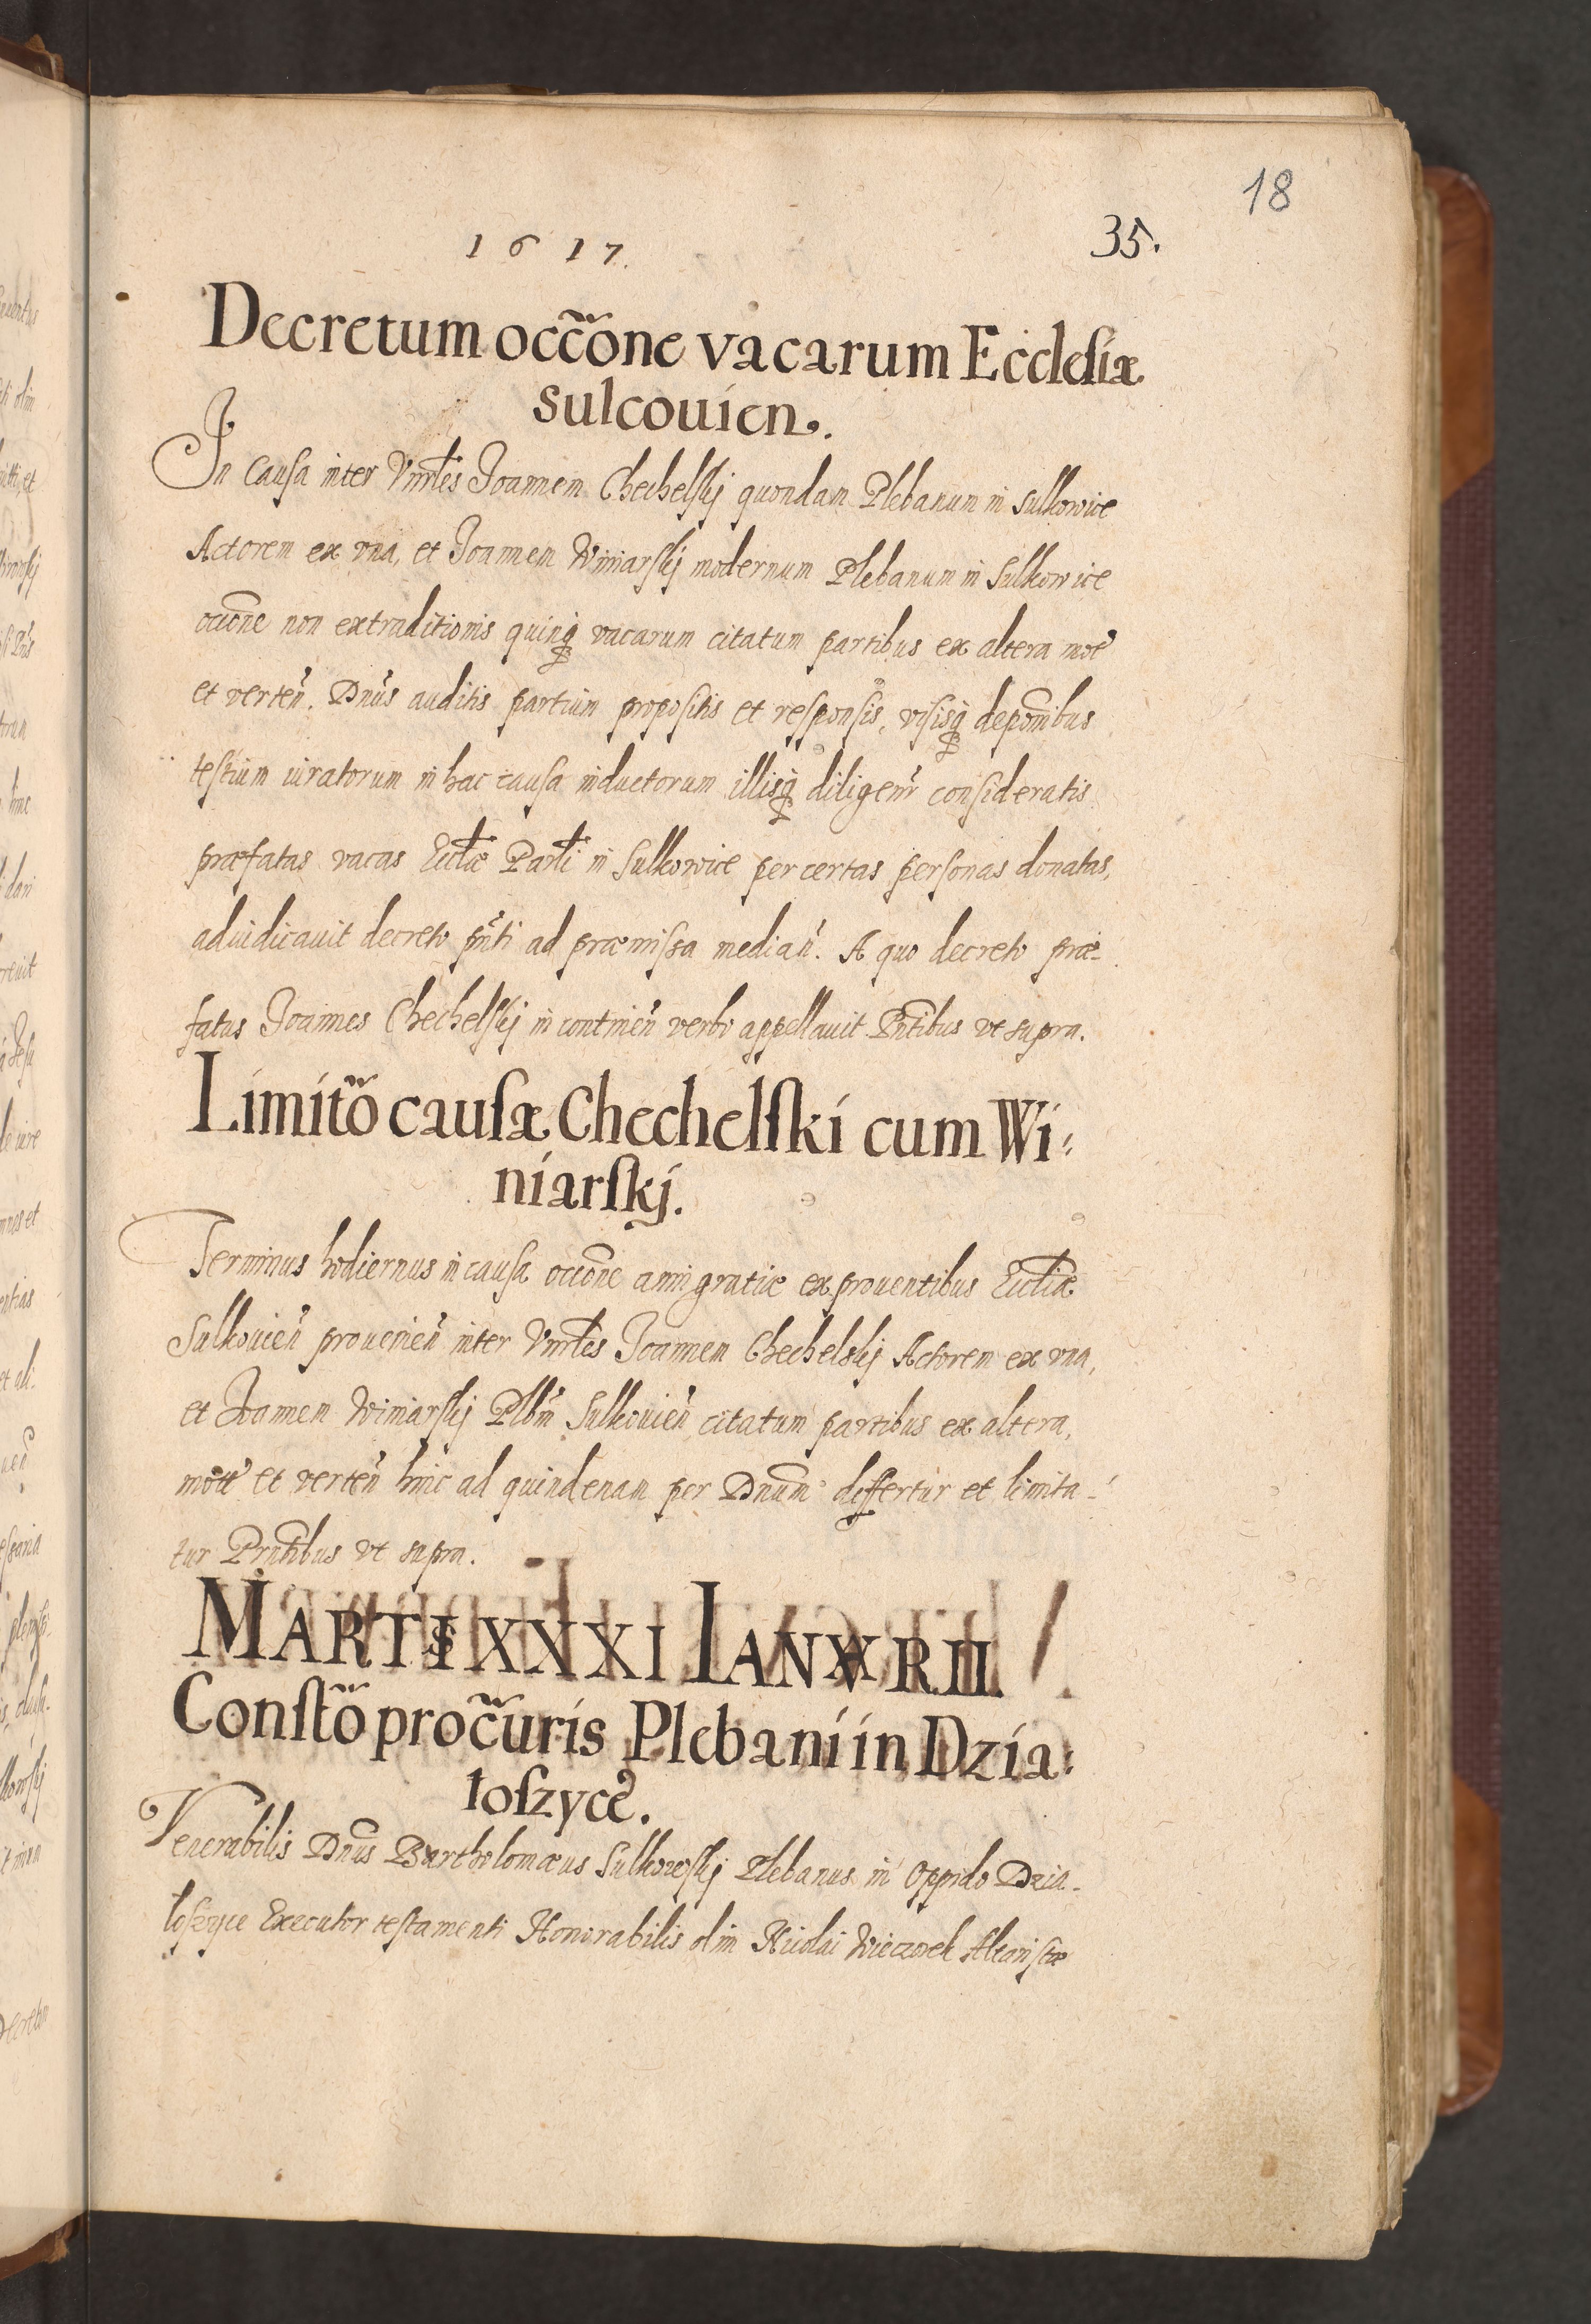 18
1617.
35.
Decretum occõne vacarum Ecclesiæ
sulcouien.
In Causa inter Vnrłes Joannem Chechelskj quondam Plebanum in Sulkowice
Actorem ex vna, et Joannem Winiarskj modernum Plebanum in Sulkowice
occõne non extraditionis quinq vacarum citatum partibus ex altera mot̃
et verteñ. Dnũs auditis partium propositis et responsis, visisq deponĩbus
testium iuratorum in hac causa inductorum illisq diligenr̃ consideratis
præfatas vacas Eccłiæ Parłi in Sulkowice per certas personas donatas,
adiudicauit decreto pñti ad præmissa mediañ. A quo decreto præ-
fatus Joannes Chechelskj in contineñ verbo appellauit Pñtibus vt supra.
Limitõ causæ Chechelski cum Wi:
niarskj.
Terminus hodiernus in causa occõne anni gratiæ ex prouentibus Eccłiæ
Sulkouieñ prouenieñ inter Vnrłes Joannem Chechelskj Actorem ex vna,
et Joannem Winiarskj Plbñ Sulkouieñ citatum partibus ex altera,
mot̃ et verteñ hinc ad quindenam per Dnũm differtur et limita-
tur Prñtibus vt supra.
MARTIS XXXI IANVARII.
Constõ procuris Plebani in Dzia:
łoszyce.
Venerabilis Dnũs Bartholomæus Sulkowskj Plebanus in Oppido Dzia-
łoszyce Executor testamenti Honorabilis olim Nicolai Wieczorek Altaristæ